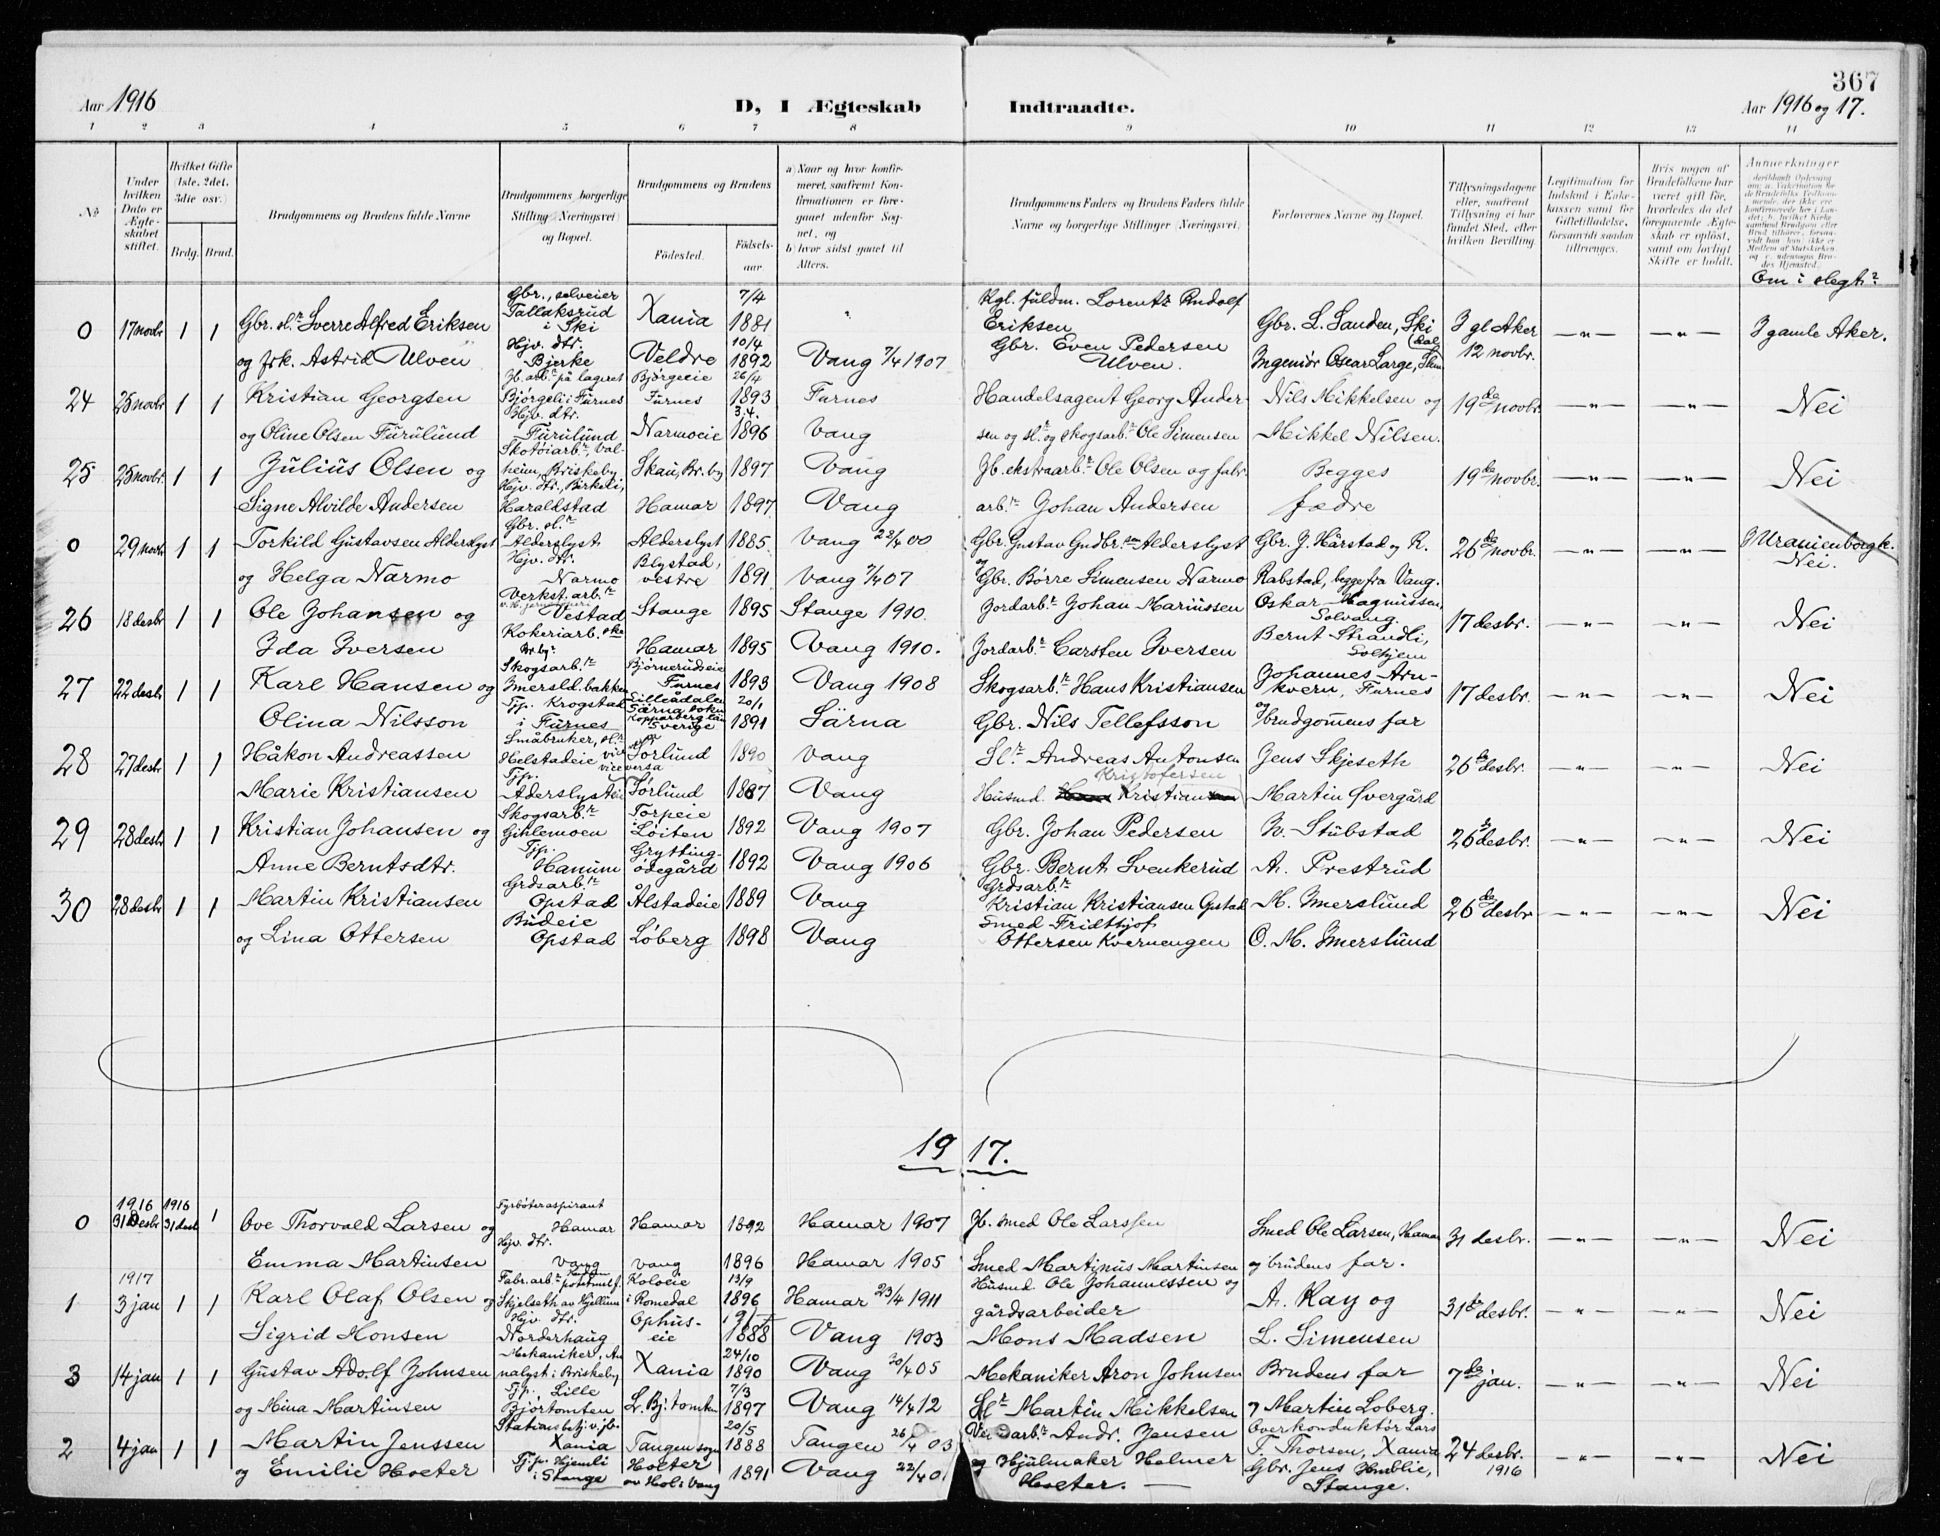 367
Aar 1916
D, I Ægteskab Indtraadte.
Aar 1916 og 17.
1 2 3 4 5 6 7 8 9 10 11 12 13 14
No
Under hvilken Dato er Ægteskabet stiftet.
Hvilket Gifte (1ste, 2det, 3die osv.)
Brdg. Brud.
Brudgommens og Brudens fulde Navne
Brudgommens borgerlige Stilling (Næringsvei) og Bopæl.
Brudgommens og Brudens
Födested. Födselsaar
a) Naar og hvor konfirmeret, saafremt Konfirmationen er foregaaet udenfor Sognet, og
b) hvor sidst gaaet til Alters.
Brudgommens Faders og Brudens Faders fulde Navne og borgerlige Stillinger (Næringsvei).
Forlovernes Navne og Bopæl.
Tillysningsdagene eller, saafremt Tillysning ei har fundet Sted, efter hvilken Bevilling.
Legitimation for Indskud i Enkekassen samt for Giftetilladelse, forsaavidt saadan tiltrænges.
Hvis nogen af Brudefolkene har været gift før, hvorledes da det foregaaende Ægteskab er opløst, samt om lovligt Skifte er holdt.
Anmerkninger
Om i slegt?
0 17 novbr 1 1 Gbr. sl. Sverre Alfred Eriksen Gbr., selveier Tallaksrud i Ski Xania 7/4 1881 Kgl. fuldm. Lorentz Rudolf Eriksen Gbr. L. Sanden, Ski 3 gl Aker —"— —"— I gamle Aker.
og frk. Astrid Ulven Hjv. dtr. Bjerke Veldre 10/4 1892 Vang 7/4 1907 Gbr. Even Pedersen Ulven. Ingeniør Oscar Large, 12 novbr.
24 25 novbr 1 1 Kristian Georgsen Jb. arb. på lageret Bjørgeli i Furnes Bjørgeeie Furnes 26/4 1893 Furnes Handelsagent Georg Ander- Nils Mikkelsen og 19de novbr. —"— —"— Nei
og Oline Olsen Furulund Hjv. dtr. Furulund Narmoeie 3.4. 1896 Vang sen og sl. og skogsarb. Ole Simensen Mikkel Nilsen.
25 25 novbr. 1 1 Julius Olsen og Skotøiarb., Valheim, Briskeby Skau, Br.by 1897 Vang Jb. ekstraarb. Ole Olsen og fabr. Begges 19de novbr. —"— —"— Nei
Signe Alvilde Andersen Hjv. dtr., Birkeli, Haraldstad Hamar 1897 Vang arb. Johan Andersen fædre
0 29 novbr 1 1 Torkild Gustavsen Alderslyst Gbr. sl. Alderslyst Alderslyst 1885 Vang 22/4 00 Gbr. Gustav Gudbr.sen Alderslyst Gbr. J. Hårstad og R. 26de novbr. —"— —"— I Uranienborgk. Nei.
og Helga Narmo Hjv. dtr. Narmo Blystad, vestre 1891 Vang 7/4 07 og Gbr. Børre Simensen Narmo Rabstad, begge fra Vang.
26 18 desbr 1 1 Ole Johansen og Verkst. arb. Vestad Stange 1895 Stange 1910. Jordarb. Johan Mariussen Oskar Magnussen, Solvang. 17 desbr. —"— —"— Nei
Ida Iversen Kokeriarb.ske Br.by. Hamar 1895 Vang 1910. Jordarb. Carsten Iversen Bernt Strandli, Solhjem
27 22 desbr 1 1 Karl Hansen og Skogsarb. Imersld.bakken Bjørnerudseie Furnes 1893 Vang 1908 Skogsarb. Hans Kristiansen Johannes Arnkvern, Furnes 17 desbr. —"— —"— Nei
Olina Nilsson Tjp. Krogstad i Furnes Lilleådalen Särna sokn Kopparberg län Sverige 20/1 1891 Särna Gbr. Nils Tellefsson og brudgommens far
28 27 desbr 1 1 Håkon Andreassen Småbruker, sl. Helstadeie Sørlund 1890 Vang Sl. Andreas Antonsen Jens Skjeseth 26de desbr. —"— —"— Nei
Marie Kristiansen Tjp. Aderslysteie Sørlund 1887 Vang Husmd. Kristian Kristofersen Martin Øvergård
29 28 desbr 1 1 Kristian Johansen og Skogsarb. Gihlemoen Torpeie Løiten 1892 Vang 1907 Gbr. Johan Pedersen Stubstad 26de desbr. —"— —"— Nei
Anne Berntsdtr. Tjp. Hanum Gryttingødegård 1892 Vang 1906 Gbr. Bernt Svenkerud A. Prestrud
30 28 desbr 1 1 Martin Kristiansen Grdsarb. Opstad Ålstadeie 1889 Vang Grdsarb. Kristian Kristiansen Opstad M. Imerslund 26de desbr —"— —"— Nei
og Lina Ottersen Budeie Opstad Løberg 1898 Vang Smed Fridthjof Ottersen Kvernengen O. M. Imerslund
1917.
0 1916 31 Desbr 1916 31 desb 1 Ove Thorvald Larsen og Fyrbøteraspirant Hamar Hamar 1892 Hamar 1907 Jb. smed Ole Larssen Smed Ole Larsen, Hamar 31 desbr. —"— —"— Nei
Emma Martinsen Hjv. dtr. Vang Vang 1896 Hamar 1905 Smed Martinus Martinsen og brudens far.
1 1917 3 jan 1 1 Karl Olaf Olsen og Fabr. arb. Skjelseth av Hjellum Koloeie i Romedal 13/9 1896 Hamar 23/4 1911 Husmd Ole Johannessen og A. Kay og 31te desbr. —"— —"— Nei
Sigrid Monsen Hjv. dtr. Norderhaug Ophuseie 1888 Vang 1903 gårdsarbeider Mons Madsen L. Simensen
3 14 jan 1 1 Gustav Adolf Johnsen Mekaniker, Xania 24/10 1890 Vang 30/4 05 Mekaniker Aron Johnsen Brudens far 7de jan. —"— —"— Nei
og Mina Martinsen Tjp. Lille Bjørtomten L. Bj.tomten 7/3 1897 Vang 14/4 12 Sl. Martin Mikkelsen og Martin Løberg.
2 4 jan 1 1 Martin Jenssen Stationsbetj. v. jb. Xania Tangen sogn 20/5 1888 Tangen 26/4 03 Veiarb. Andr. Jensen Overkonduktør Lars T. Thorsen, Xania 24 desbr. 1916 —"— —"— Nei
og Emilie Hoeter Tjp. Hjemli i Stange Hoeter av Hol i Vang 1891 Vang 22/4 0 og Hjulmaker Helmer Hoeter. — Gbr. Jens Stange.